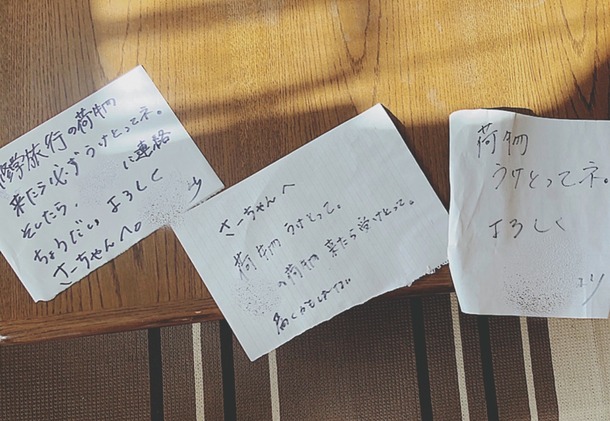 修学旅行の荷物
来たら必ずうけとってネ。
そしたら、 に連絡
ちょうだい よろしく
さーちゃんへ。
さーちゃんへ
荷物うけとって。
の荷物 来たら受けとって。
荷物
うけとってネ。
よろしく